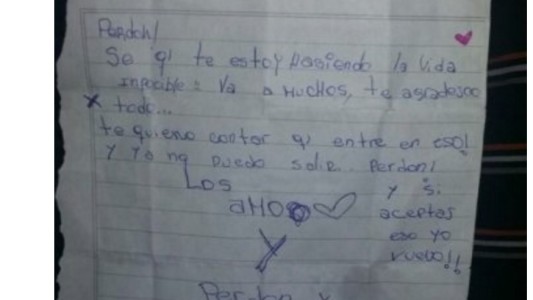 Perdon!
Se q' te estoy hasiendo la vida
inpocible: Va a MUCHOS, te agradesco
x todo...
te quiero contar q' entre en eso!
Y Yo no puedo salir. Perdon!
Los
aMO
Y
y si
aceptas
eso yo
vuelvo!!
Perdon x